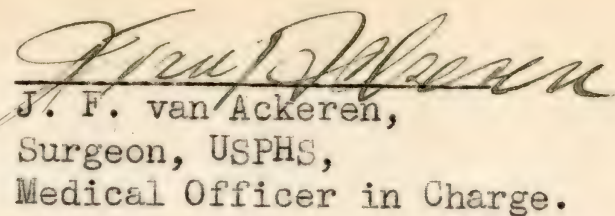 J. F. van Ackeren,
Surgeon, USPHS,
Medical Officer in Charge.